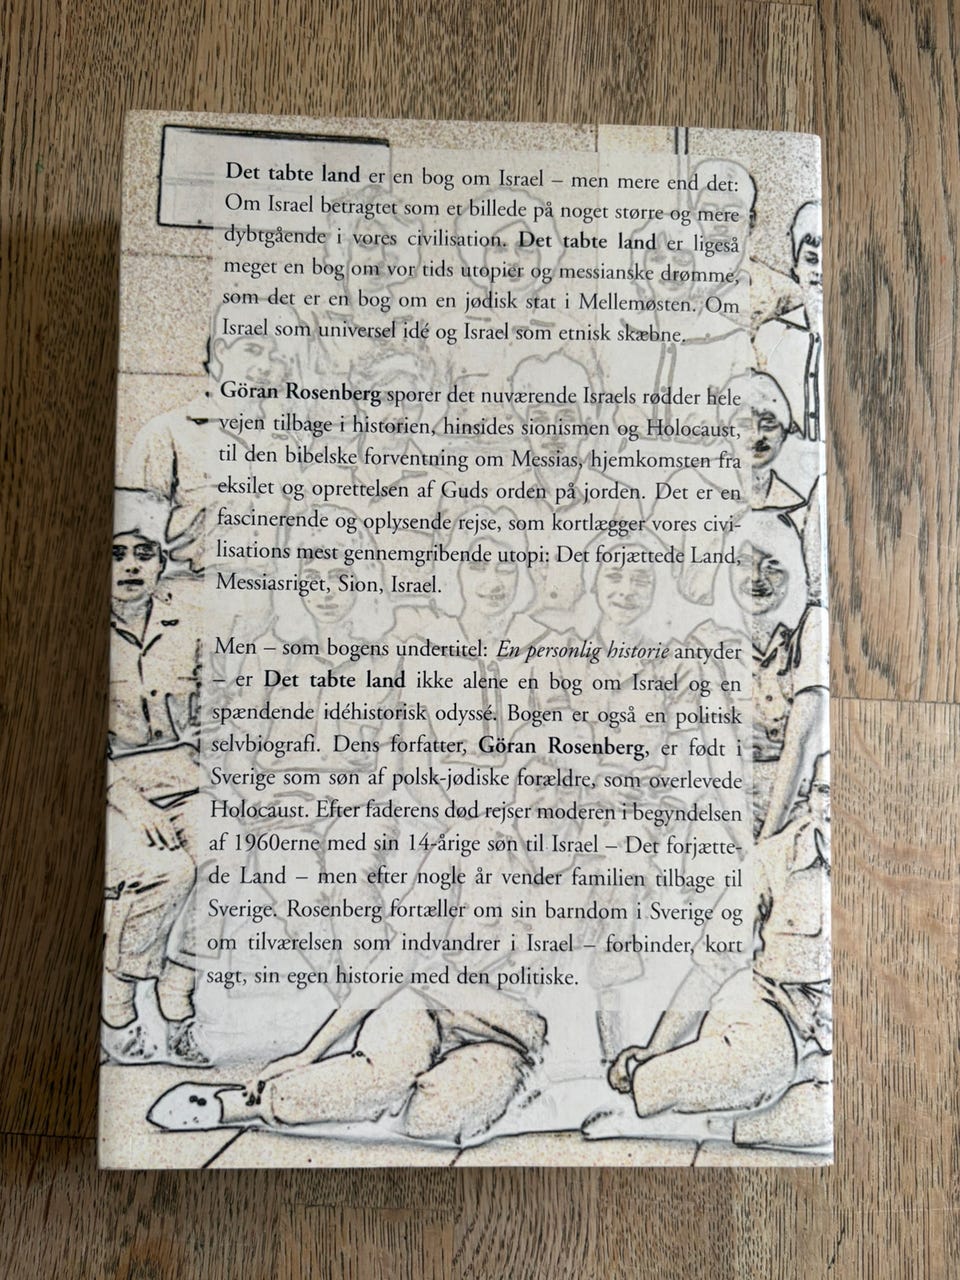 Det tabte land er en bog om Israel – men mere end det:
Om Israel betragtet som et billede på noget større og mere
dybtgående i vores civilisation. Det tabte land er ligeså
meget en bog om vor tids utopier og messianske drømme,
som det er en bog om en jødisk stat i Mellemøsten. Om
Israel som universel idé og Israel som etnisk skæbne.
Göran Rosenberg sporer det nuværende Israels rødder hele
vejen tilbage i historien, hinsides sionismen og Holocaust,
til den bibelske forventning om Messias, hjemkomsten fra
eksilet og oprettelsen af Guds orden på jorden. Det er en
fascinerende og oplysende rejse, som kortlægger vores civi-
lisations mest gennemgribende utopi: Det forjættede Land,
Messiasriget, Sion, Israel.
Men – som bogens undertitel: En personlig historie antyder
– er Det tabte land ikke alene en bog om Israel og en
spændende idéhistorisk odyssé. Bogen er også en politisk
selvbiografi. Dens forfatter, Göran Rosenberg, er født i
Sverige som søn af polsk-jødiske forældre, som overlevede
Holocaust. Efter faderens død rejser moderen i begyndelsen
af 1960erne med sin 14-årige søn til Israel – Det forjætte-
de Land – men efter nogle år vender familien tilbage til
Sverige. Rosenberg fortæller om sin barndom i Sverige og
om tilværelsen som indvandrer i Israel – forbinder, kort
sagt, sin egen historie med den politiske.